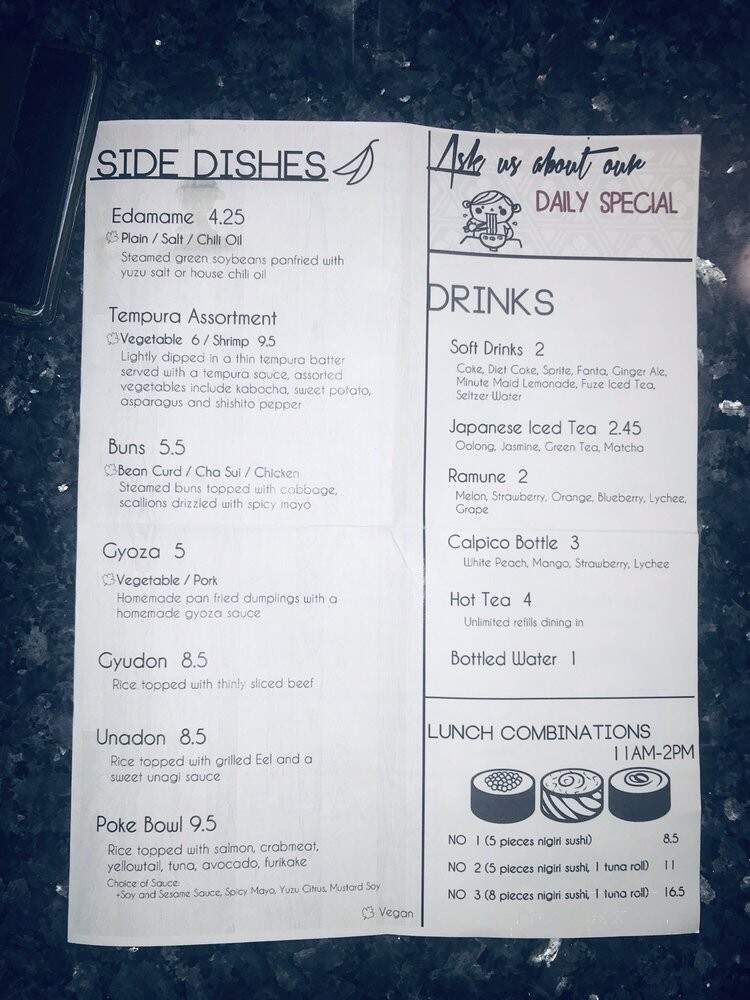 SIDE DISHES
Edamame 4.25
Plain / Salt / Chili Oil
Steamed green soybeans panfried with
yuzu salt or house chili oil
Tempura Assortment
Vegetable 6 / Shrimp 9.5
Lightly dipped in a thin tempura batter
served with a tempura sauce, assorted
vegetables include kabocha, sweet potato,
asparagus and shishito pepper
Buns 5.5
Bean Curd / Cha Sui / Chicken
Steamed buns topped with cabbage,
scallions drizzled with spicy mayo
Gyoza 5
Vegetable / Pork
Homemade pan fried dumplings with a
homemade gyoza sauce
Gyudon 8.5
Rice topped with thinly sliced beef
Unadon 8.5
Rice topped with grilled Eel and a
sweet unagi sauce
Poke Bowl 9.5
Rice topped with salmon, crabmeat,
yellowtail, tuna, avocado, furikake
Choice of Sauce:
+Soy and Sesame Sauce, Spicy Mayo, Yuzu Citrus, Mustard Soy
Vegan
Ask us about our
DAILY SPECIAL
DRINKS
Soft Drinks 2
Coke, Diet Coke, Sprite, Fanta, Ginger Ale,
Minute Maid Lemonade, Fuze Iced Tea,
Seltzer Water
Japanese Iced Tea 2.45
Oolong, Jasmine, Green Tea, Matcha
Ramune 2
Melon, Strawberry, Orange, Blueberry, Lychee,
Grape
Calpico Bottle 3
White Peach, Mango, Strawberry, Lychee
Hot Tea 4
Unlimited refills dining in
Bottled Water 1
LUNCH COMBINATIONS
11AM-2PM
NO 1 (5 pieces nigiri sushi) 8.5
NO 2 (5 pieces nigiri sushi, 1 tuna roll) 11
NO 3 (8 pieces nigiri sushi, 1 tuna roll) 16.5